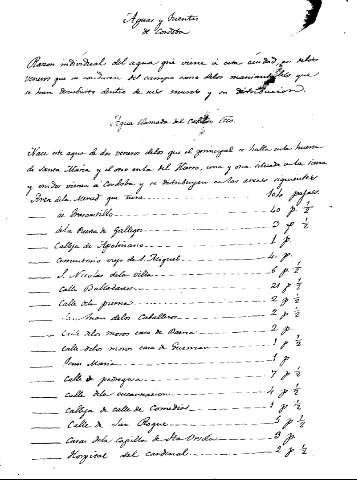 Aguas y Fuentes
de Cordoba
Razon individual del agua que viene a esta ciudad, asi delos
veneros que se conducen del campo como delos manantiales que
se han descubierto dentro de sus muros y su distribucion.
Agua llamada del Cabildo Ecco.
Nace este agua de dos veneros delos que el principal se halla en la huerta
de Santa Maria y el otro en la del Hierro, una y otra situada en la sierra
y unidos vienen a Cordoba y se distribuyen en las arcas siguientes
Arca dela Merced que tiene 160 pajas
de Broncantillo 40 p ½
dela Puerta de Gallegos 3 p ½
Calleja de Apolinario 1 p.
Cementerio viejo de S. Miguel 4. p.
S. Nicolas dela Villa 6 p ½
calle Valladares 21 p ½
Calle dela pierna 2 p ½
San Juan delos Caballeros 2 p ½
Calle delos moros casa de Baena 2 p.
calle delos moros casa de Guzman 1 p ½
Jesus Maria 1 p.
calle de pedregosa 7 p ½
calle dela encarnacion 4 p ½
calleja de calle de Comedias 1 p ½
Calle de San Roque 5 p ½
Casas dela Capilla de Sta Ursula 3 p
Hospital del cardenal 2 p ½